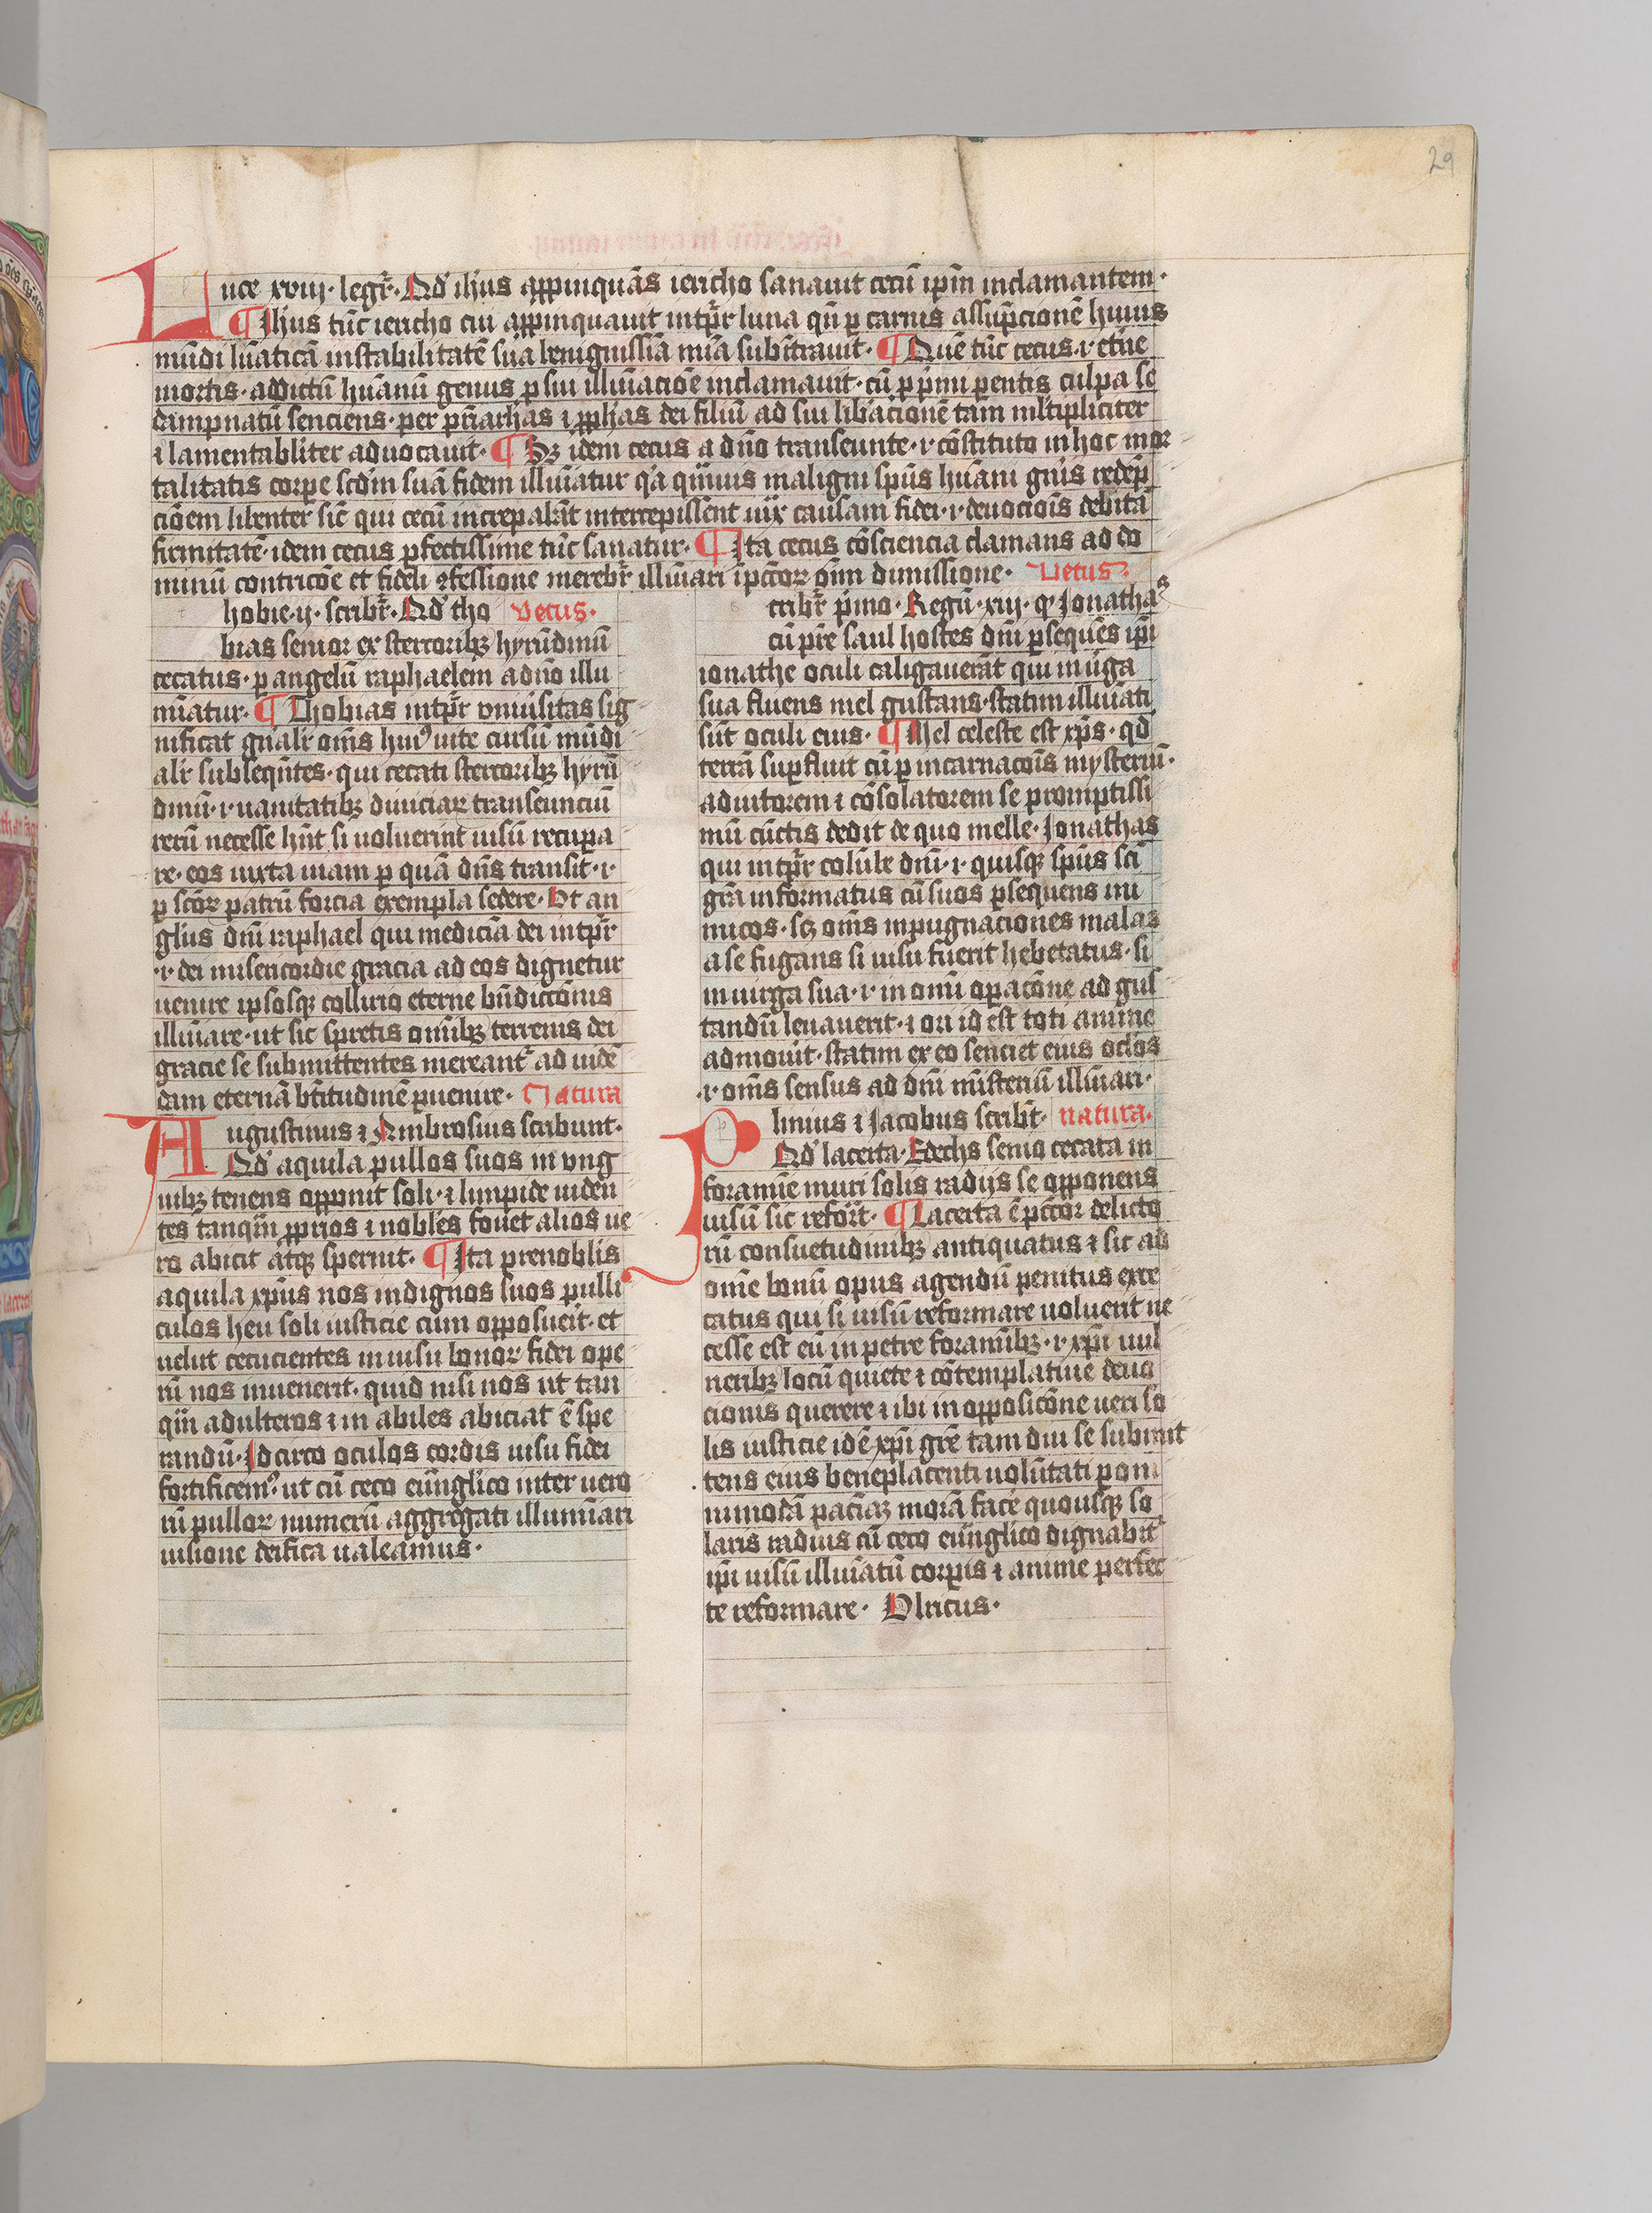 29
Luce xviij· legit᷑· Qd᷑ ih̄us appinquās iericho sanauit cecū ip̄m inclamantem·
¶ Ih̄us tūc iericho cui appinquauit intp̄r luna qn̄ p carnis assūpcionē huius
mūdi lūaticā instabilitatē sua benignissīa mīa subītrauit· ¶ Quē tūc cecus·i· et̄ne
mortis· addictū huānū genus p sui illuīacōe inclamauit· cū p p̄mi pentis culpa se
dāmpnatū senciens· per p̄riarhas ⁊ ꝓphas dei filiū ad sui lib̄acionē tam mltipliciter
⁊ lamentabliter aduocauit· ¶ Hꝫ idem cecus a dn̄o transeunte·i· cōstituto in hoc mor
talitatis corpe scd̄m suā fidem illuīatur q̄a qn̄uis maligni sp̄us huāni gn̄is redēp
cōem libenter sic̄ qui cecū increpabāt intercepissent iux causam fidei·⁊·deuociōis debitā
firmitatē· idem cecus pfectissime tūc sanatur· ¶ Ita cecus cōsciencia clamans ad do
minū contricōe et fideli ꝯfessione mereb᷑r illuīari īpctōꝝ oīm dimissione· Vetus·
hobie·ij· scrib᷑r· Qd᷑ tho vetus·
bias senior ex stercoribꝫ hyrūdinū
cecatus· p angelū raphaelem a dn̄o illu
mīatur· ¶ Thobias intp̄r vniūsitas sig
nificat gn̄alr oīs huiꝰ uite cursū mūdi
alr subseqn̄tes· qui cecati stercoribꝫ hyrū
dinū·⁊·uanitatibꝫ diuiciaꝝ transeunciū
rerū necesse hn̄t si uoluerint uisū recupa
re· eos iuxta uiam p quā dn̄s transit·i·
p sc̄oꝝ patrū forcia exempla sedere· Vt an
glus dn̄i raphael qui medicīa dei intp̄r
·i· dei misericordie gracia ad eos dignetur
uenire ipsosqꝫ collirio eterne bn̄dictōnis
illuīare· ut sic spretis oīnibꝫ terrenis dei
gracie se submittentes mereant᷑ ad uidē
dam eternā bt̄itudinē puenire· Natura
Augustinus ⁊ Ambrosius scribunt·
Qd᷑ aquila pullos suos in vng
uibꝫ tenens opponit soli·⁊ limpide uiden
tes tanqm̄ pprios ⁊ nobles fouet alios ue
ro abicit atqꝫ spernit· ¶ Ita prenoblis
aquila xp̄us nos indignos suos pulli
culos heu soli iusticie cum opposueit· et
uelut cecucientes in uisu bonoꝝ fidei ope
rū nos inuenerit· quid nisi nos ut tan
qm̄ adulteros ⁊ in abiles abiciat ē spe
randū· Idcirco oculos cordis uisu fidei
fortificemꝰ· ut cū ceco euā̄nglico inter uero
rū pulloꝝ numerū aggregati illumīari
uisione deifica ualeamus·
cribit᷑ p̄mo· Regū·xiij· qꝰ Jonathas
cū pre saul hostes dn̄i psequēs ip̄i
ionathe oculi caligauerāt qui in ūga
sua fluens mel gustans· statim illuīati
sūt oculi eius· ¶ Mel celeste est xp̄s· qd
terrā supfluit cū p incarnacōis mysteriū·
adiutorem ⁊ cōsolatorem se promptissi
mū cūctis dedit de quo melle· Jonathas
qui intp̄r colūbe dn̄i·i· quisqꝫ spūs sc̄i
grā informatus cū suos psequens ini
micos· scꝫ oīs inpugnaciones malas
a se fugans si uisu fuerit hebetatus· si
in uirga sua·i· in omī opacōne ad gus
tandū leuauerit·⁊ ori id est toti anime
admouit· statim ex eo senciet eius oclos
·i· oīs sensus ad dn̄i mīsteriū illuīari·
Plinius ⁊ Jacobus scribūt· natura·
Qd᷑ lacerta· Edechs senio cecata in
foramīe muri solis radijs se opponens
uisū sic refor̄t· ¶ Lacerta ē pctōr delicto
rū consuetudinibꝫ antiquatus ⁊ sic ad
omē bonū opus agendū penitus exce
catus qui si uisū reformare uoluerit ne
cesse est eū in petre foramībꝫ·i· xp̄i uul
neribꝫ locū quiete ⁊ cōtemplatiue deuo
cionis querere ⁊ ibi in opposicōne ueri so
lis iusticie id ē xp̄i grē tam diu se submit
tens eius beneplacenti uolūtati p om
nimodā paciēciā morā facē quousqꝫ so
laris radius cū ceco euā̄nglico dignabit᷑
ip̄i uisū illuīatū corpis ⁊ anime perfec
te reformare· Vlricus·